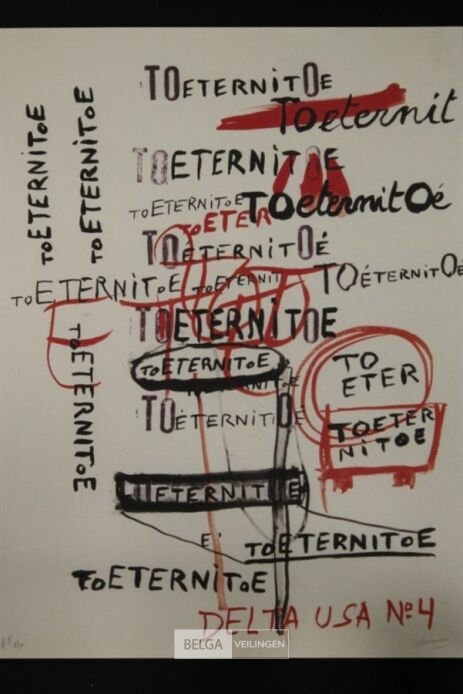 TOETERNITOE
TOeternit
TOETERNITOE
TOETERNITOE
TOETERNITOE
TOETERNITOE
TOeternitOé
TOETER
TOETERNITOÉ
TOETERNITOE
TOETERNIT
TOÉTERNITOÉ
TOETERNITOE
TOETERNITOE
TOETERNITOE
TO
ETER
TOETERNITOE
TOETER
NITOE
ETERNIT
E
TOETERNITOE
TOETERNITOE
DELTA USA Nº4
BELGA VEILINGEN